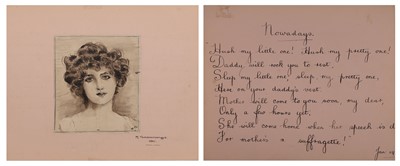 Nowadays.
"Hush my little one! Hush my pretty one!
Daddy will rock you to rest.
Sleep my little one, sleep my pretty one,
Here on your daddy's vest.
Mother will come to you soon, my dear,
Only a few hours yet,
She will come home when her speech is d
For mother's a suffragette!"
Jan